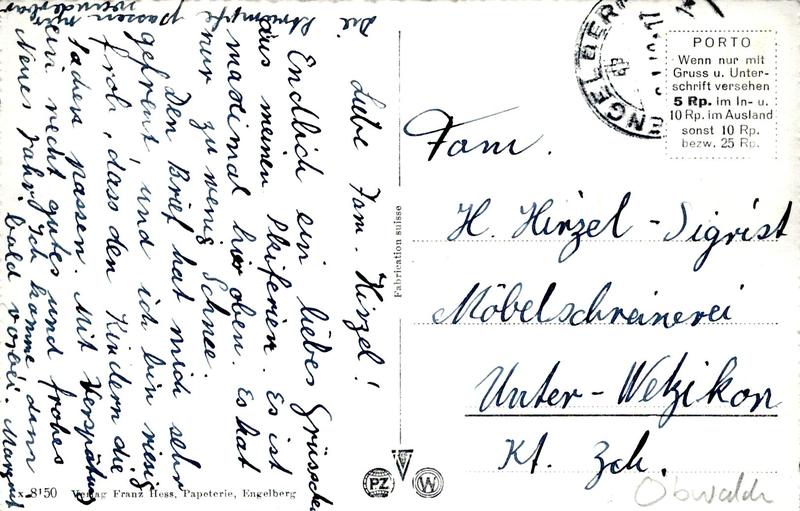 Liebe Fam. Hirzel!
Endlich ein liebes Grüsschen
aus meinen Skiferien. Es ist
maximal hier oben. Es hat
nur zu wenig Schnee.
Den Brief hat mich sehr
gefreut und ich bin riesig
froh, dass den Kindern die
Sachen passen. Mit Verspätung
ein recht gutes und frohes
Neues Jahr. Ich komme dann
bald vorbei. Margrit
Die Strümpfe passen mir
wunderbar
Fabrication suisse
ENGELBERG
PORTO
Wenn nur mit
Gruss u. Unter-
schrift versehen
5 Rp. im In- u.
10 Rp. im Ausland
sonst 10 Rp.
bezw. 25 Rp.
Fam.
H. Hirzel-Sigrist
Möbelschreinerei
Unter-Wetzikon
Kt. Zch.
Obwald
x-8150 Verlag Franz Hess, Papeterie, Engelberg
PZ W